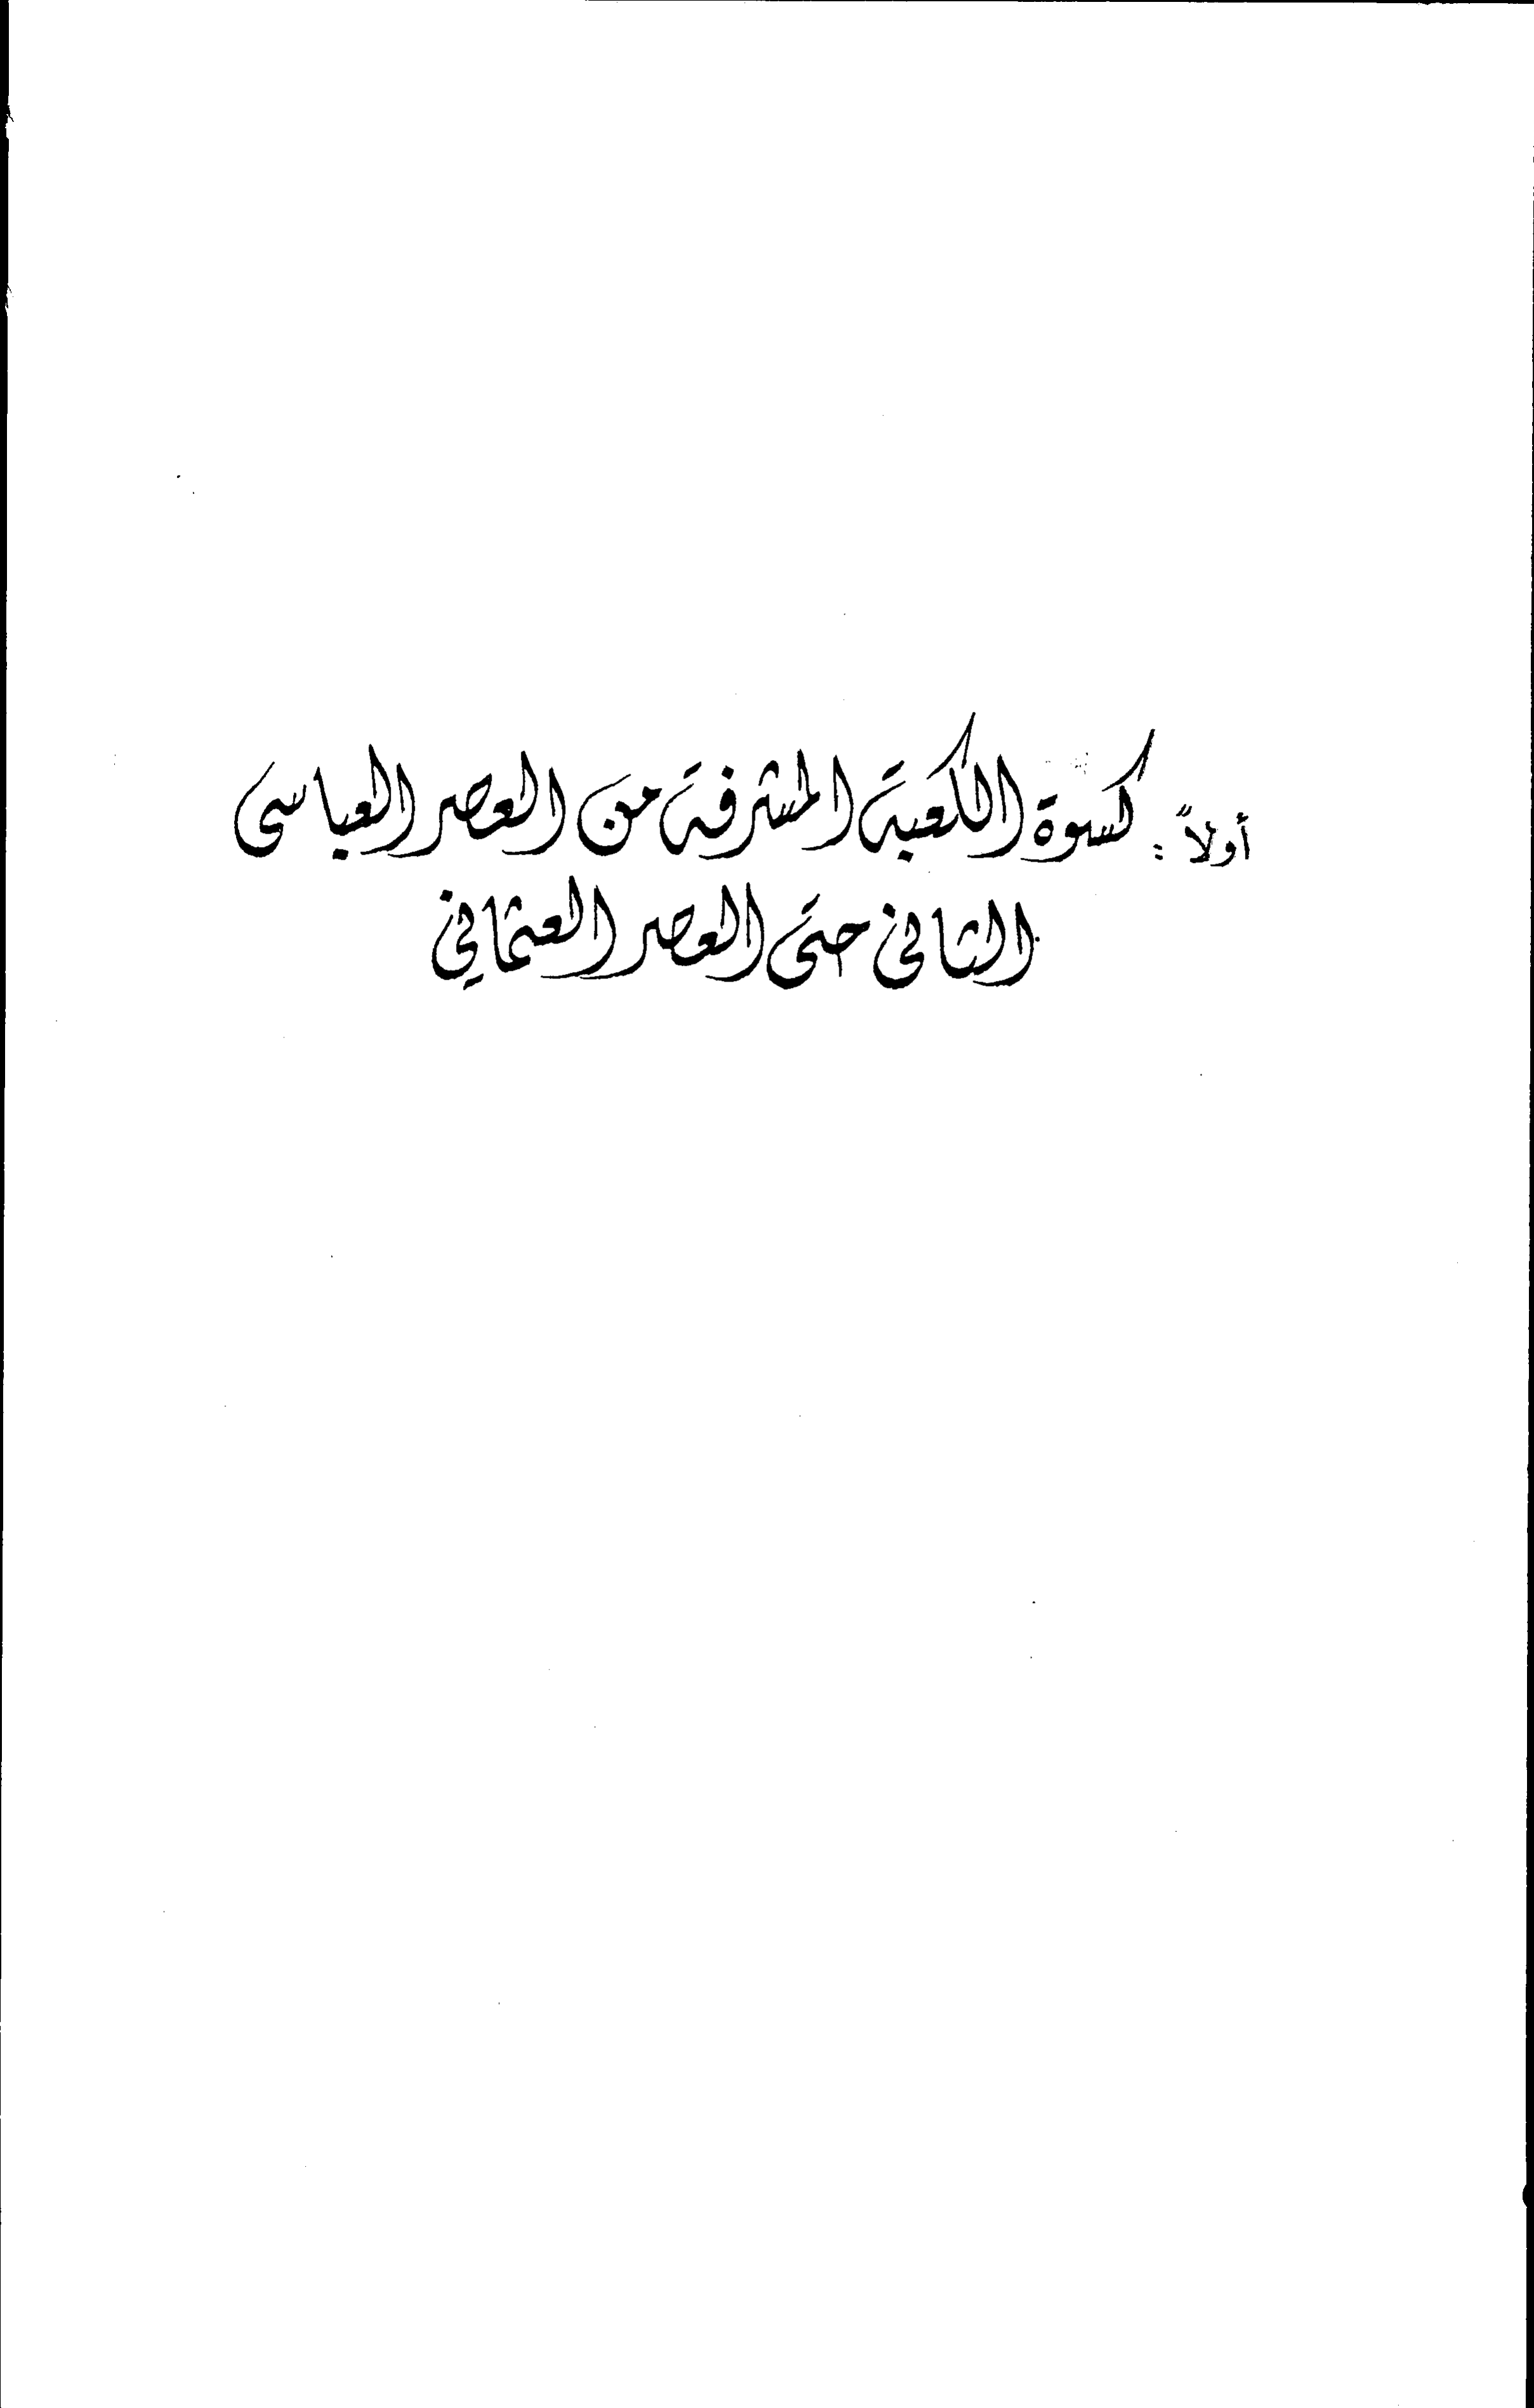 أولاً: كسوة الكعبة المشرفة من العصر العباسى
الثانى حتى العصر العثماني